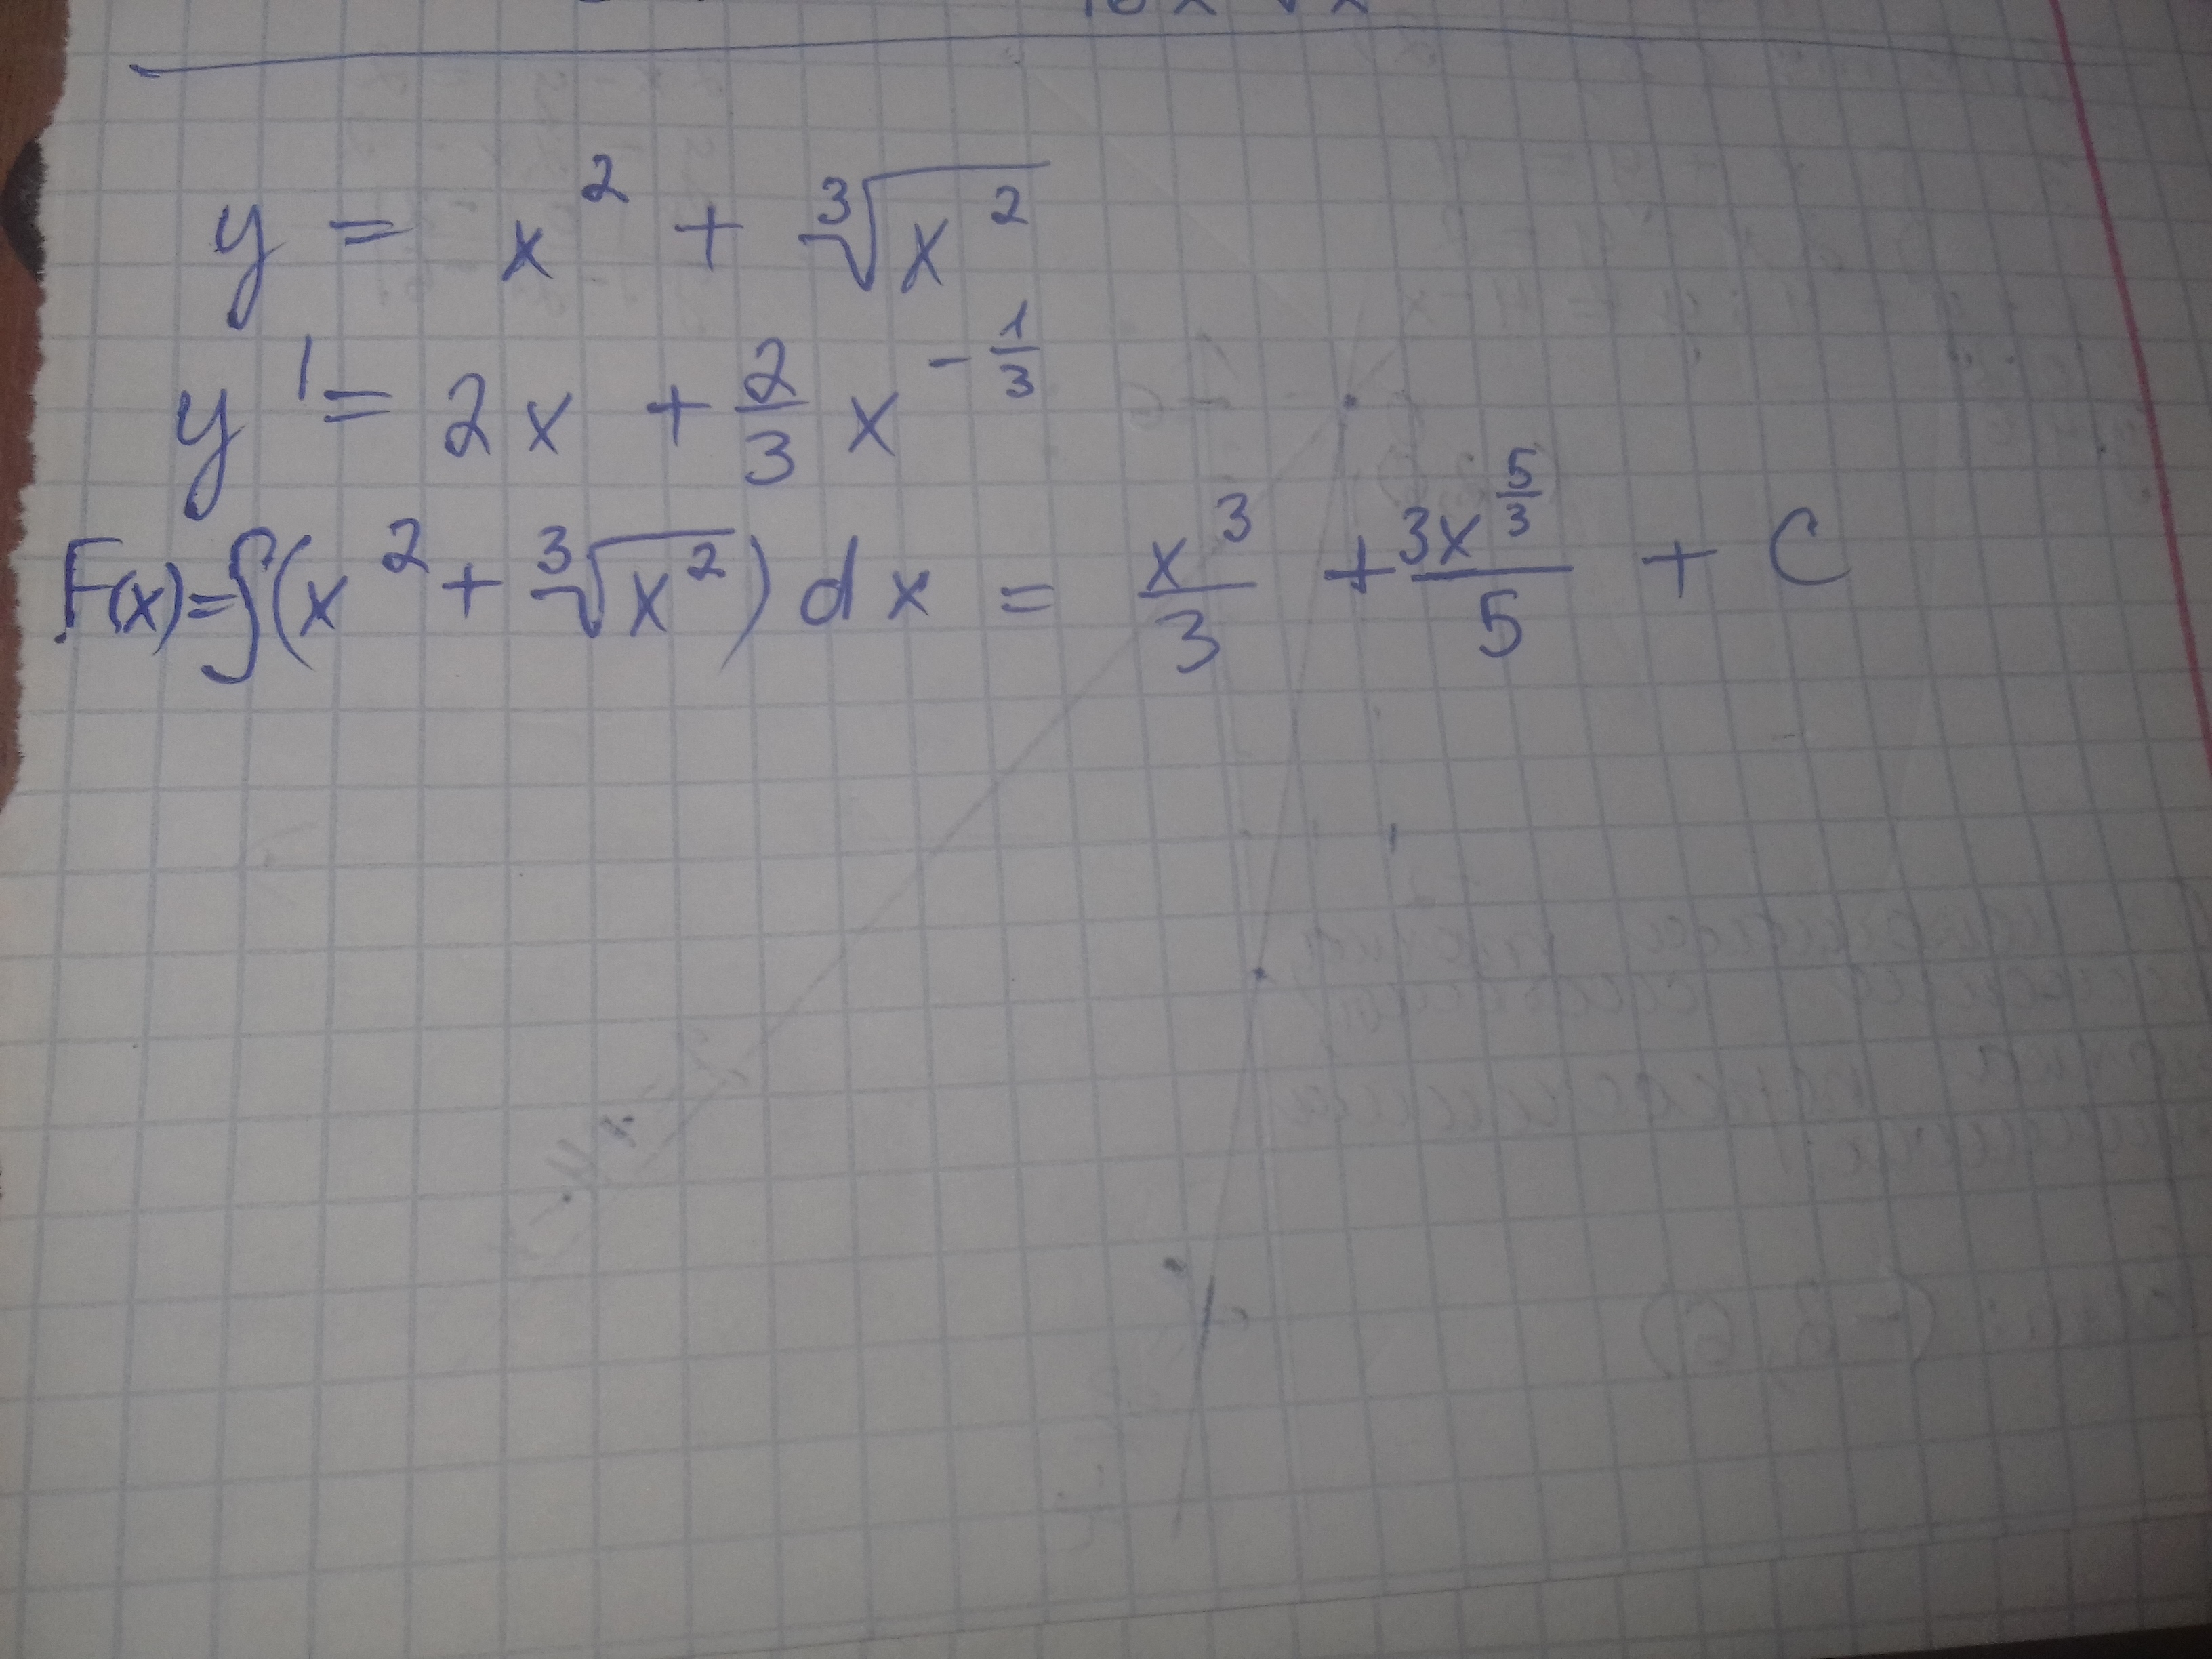 y = x² + ∛x²
y' = 2x + 2/3 x^(-1/3)
F(x)=∫(x² + ∛x²)dx = x³/3 + 3x^(5/3)/5 + C